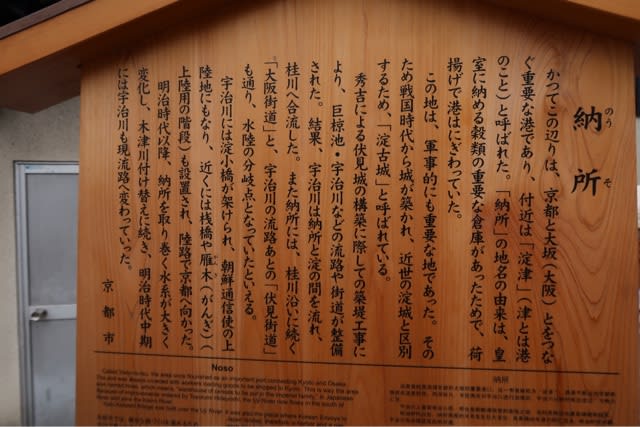 納所
のうそ
かつてこの辺りは、京都と大坂(大阪)とをつな
ぐ重要な港であり、付近は「淀津」(津とは港
のこと)と呼ばれた。「納所」の地名の由来は、皇
室に納める穀類の重要な倉庫があったためで、荷
揚げで港はにぎわっていた。
この地は、軍事的にも重要な地であった。その
ため戦国時代から城が築かれ、近世の淀城と区別
するため、「淀古城」と呼ばれている。
秀吉による伏見城の構築に際しての築堤工事に
より、巨椋池・宇治川などの流路や街道が整備
された。結果、宇治川は納所と淀の間を流れ、
桂川へ合流した。また納所には、桂川沿いに続く
「大阪街道」と、宇治川の流路あとの「伏見街道」
も通り、水陸の分岐点となっていたといえる。
宇治川には淀小橋が架けられ、朝鮮通信使の上
陸地にもなり、近くには桟橋や雁木(がんぎ)(
上陸用の階段)も設置され、陸路で京都へ向かった。
明治時代以降、納所を取り巻く水系が大きく
変化し、木津川付け替えに続き、明治時代中期
には宇治川も現流路へ変わっていった。
京都市
Noso
納所